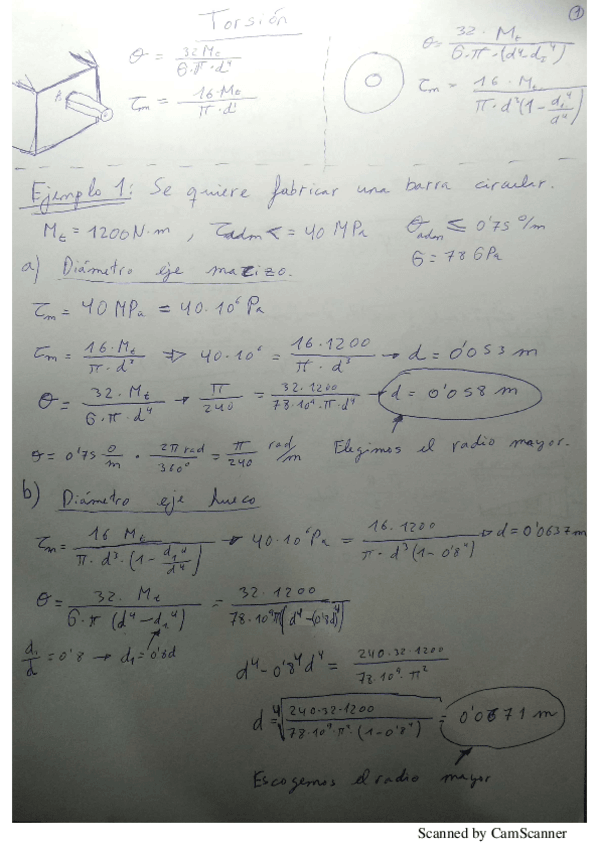 1
Torsión
θ = 32 Mt / G·π·d⁴
θ = 32·Mt / G·π·(d⁴-d₁⁴)
τm = 16·Mt / π·d³
τm = 16·Mt / π·d³(1 - d₁⁴/d⁴)
A
Ejemplo 1: Se quiere fabricar una barra circular.
Mt = 1200 N·m , τadm <= 40 MPa θadm ≤ 0'75 º/m
G = 78 GPa
a) Diámetro eje macizo.
τm = 40 MPa = 40·10⁶ Pa
τm = 16·Mt / π·d³ ⇒ 40·10⁶ = 16·1200 / π·d³ → d = 0'053 m
θ = 32·Mt / G·π·d⁴ → π/240 = 32·1200 / 78·10⁹·π·d⁴ → d = 0'058 m
θ = 0'75 º/m · 2π rad / 360º = π/240 rad/m Elegimos el radio mayor.
b) Diámetro eje hueco
τm = 16 Mt / π·d³·(1 - d₁⁴/d⁴) → 40·10⁶ Pa = 16·1200 / π·d³(1-0'8⁴) → d = 0'0637 m
θ = 32·Mt / G·π (d⁴-d₁⁴) = 32·1200 / 78·10⁹π(d⁴-(0'8d)⁴)
d₁/d = 0'8 → d₁ = 0'8d
d⁴-0'8⁴d⁴ = 240·32·1200 / 78·10⁹·π²
d = ⁴√(240·32·1200 / 78·10⁹·π²·(1-0'8⁴)) = 0'0671 m
Escogemos el radio mayor
Scanned by CamScanner